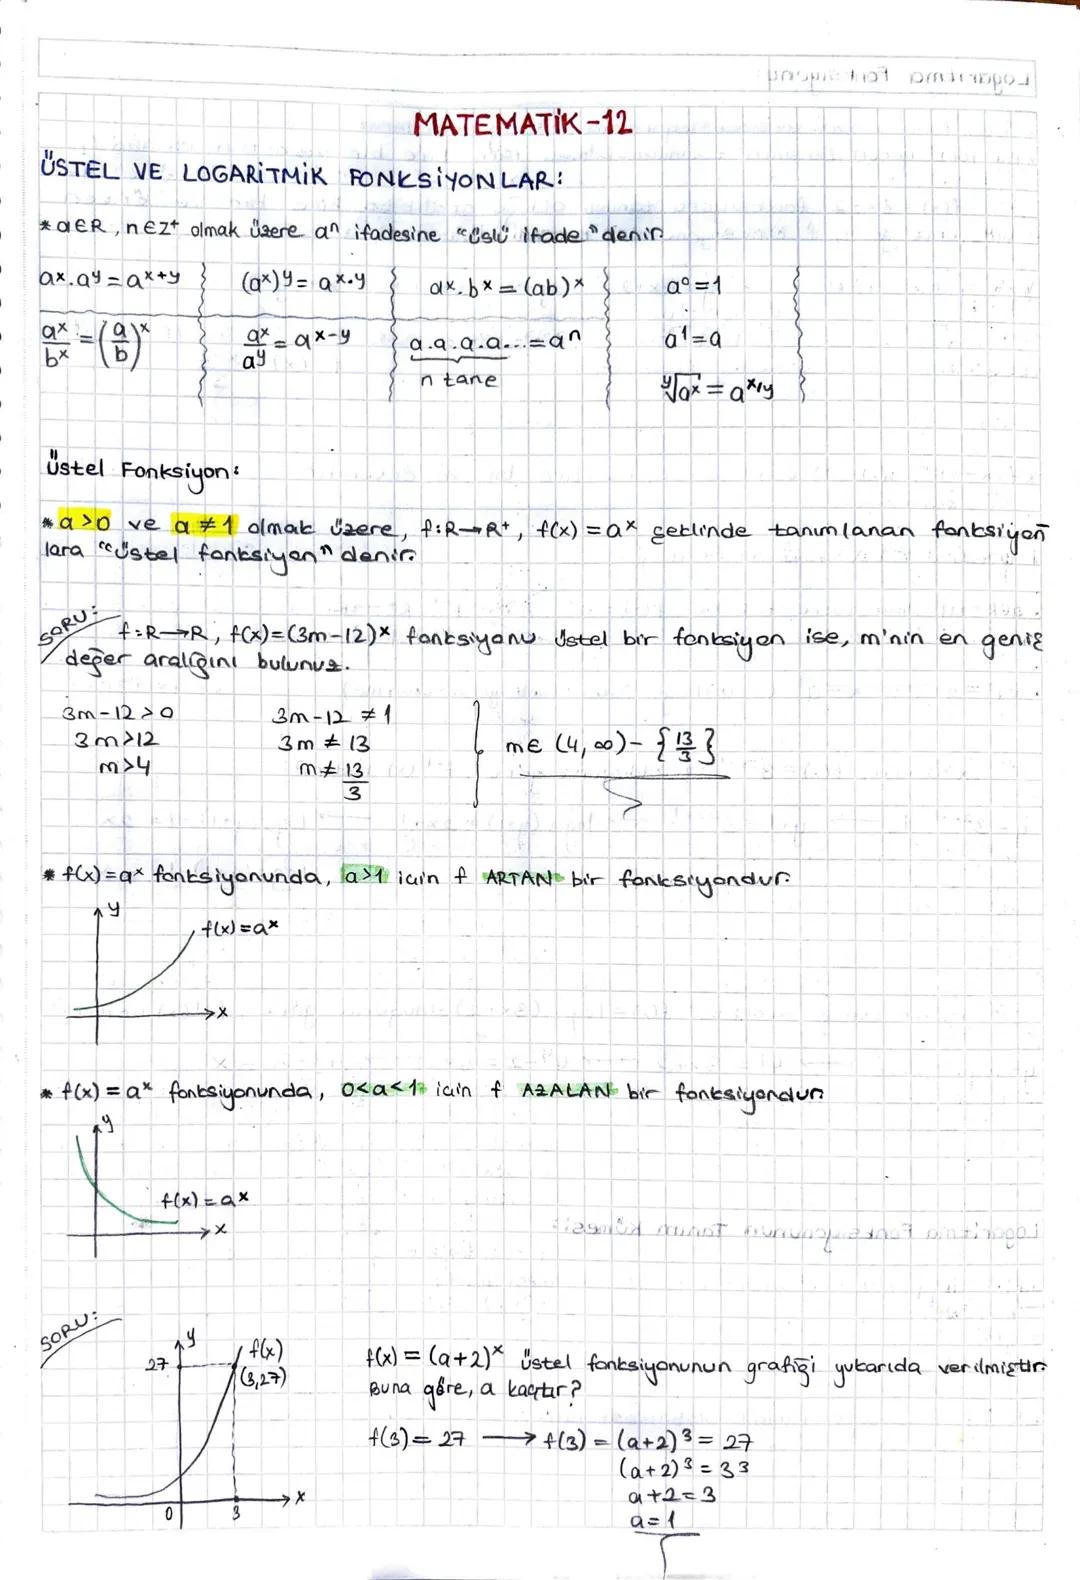 MATEMATİK-12
ÜSTEL VE LOGARİTMİK FONKSİYONLAR:
* a∈R, n∈Z⁺ olmak üzere aⁿ ifadesine "üslü ifade" denir.
aˣ.aʸ = aˣ⁺ʸ (aˣ)ʸ = aˣ·ʸ aˣ.bˣ = (ab)ˣ a⁰=1
aˣ/bˣ = (a/b)ˣ aˣ/aʸ = aˣ⁻ʸ a.a.a.a... = aⁿ a¹=a
n tane ʸ√aˣ = aˣ/ʸ
Üstel Fonksiyon:
* a>0 ve a≠1 olmak üzere, f:R→R⁺, f(x)=aˣ şeklinde tanımlanan fonksiyon
lara "üstel fonksiyon" denir.
SORU:
f:R→R, f(x)=(3m-12)ˣ fonksiyonu üstel bir fonksiyon ise, m'nin en geniş
değer aralığını bulunuz.
3m-12>0 3m-12≠1
3m>12 3m≠13 m∈ (4,∞)-{13/3}
m>4 m≠13/3
* f(x)=aˣ fonksiyonunda, a>1 için f ARTAN bir fonksiyondur.
y
f(x)=aˣ
x
* f(x)=aˣ fonksiyonunda, 0<a<1 için f AZALAN bir fonksiyondur.
y
f(x)=aˣ
x
SORU:
y
27 f(x)
(3,27)
0 3 x
f(x)=(a+2)ˣ üstel fonksiyonunun grafiği yukarıda verilmiştir.
Buna göre, a kaçtır?
f(3)=27 → f(3)=(a+2)³=27
(a+2)³=3³
a+2=3
a=1